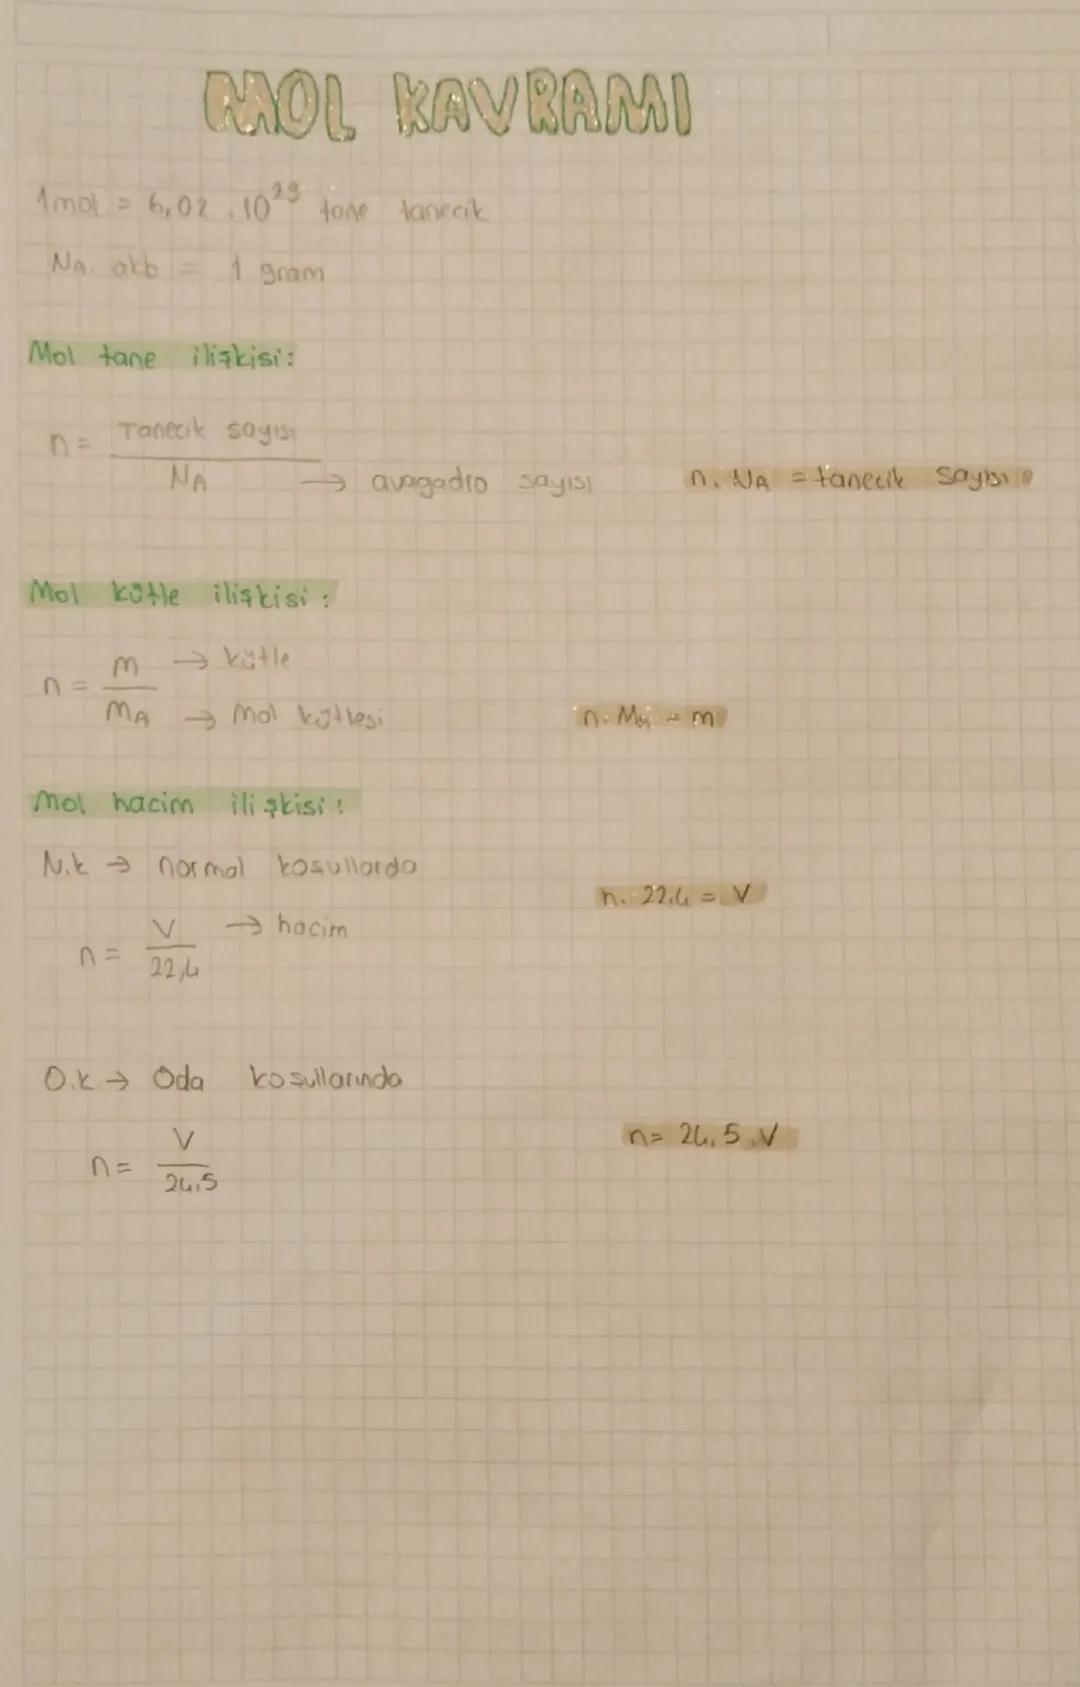 MOL KAVRAMI
1mol = 6,02 . 10²³ tane tanecik
NA. akb = 1 gram
Mol tane ilişkisi:
n = Tanecik sayısı
NA → avagadro sayısı
n. NA = tanecik sayısı
Mol kütle ilişkisi:
n = m → kütle
MA → Mol kütlesi
n. MA = m
Mol hacim ilişkisi:
N.k → normal koşullarda
n. 22,4 = V
n = V → hacim
22,4
O.k → Oda koşullarında
n = V
24,5
n = 24,5 . V